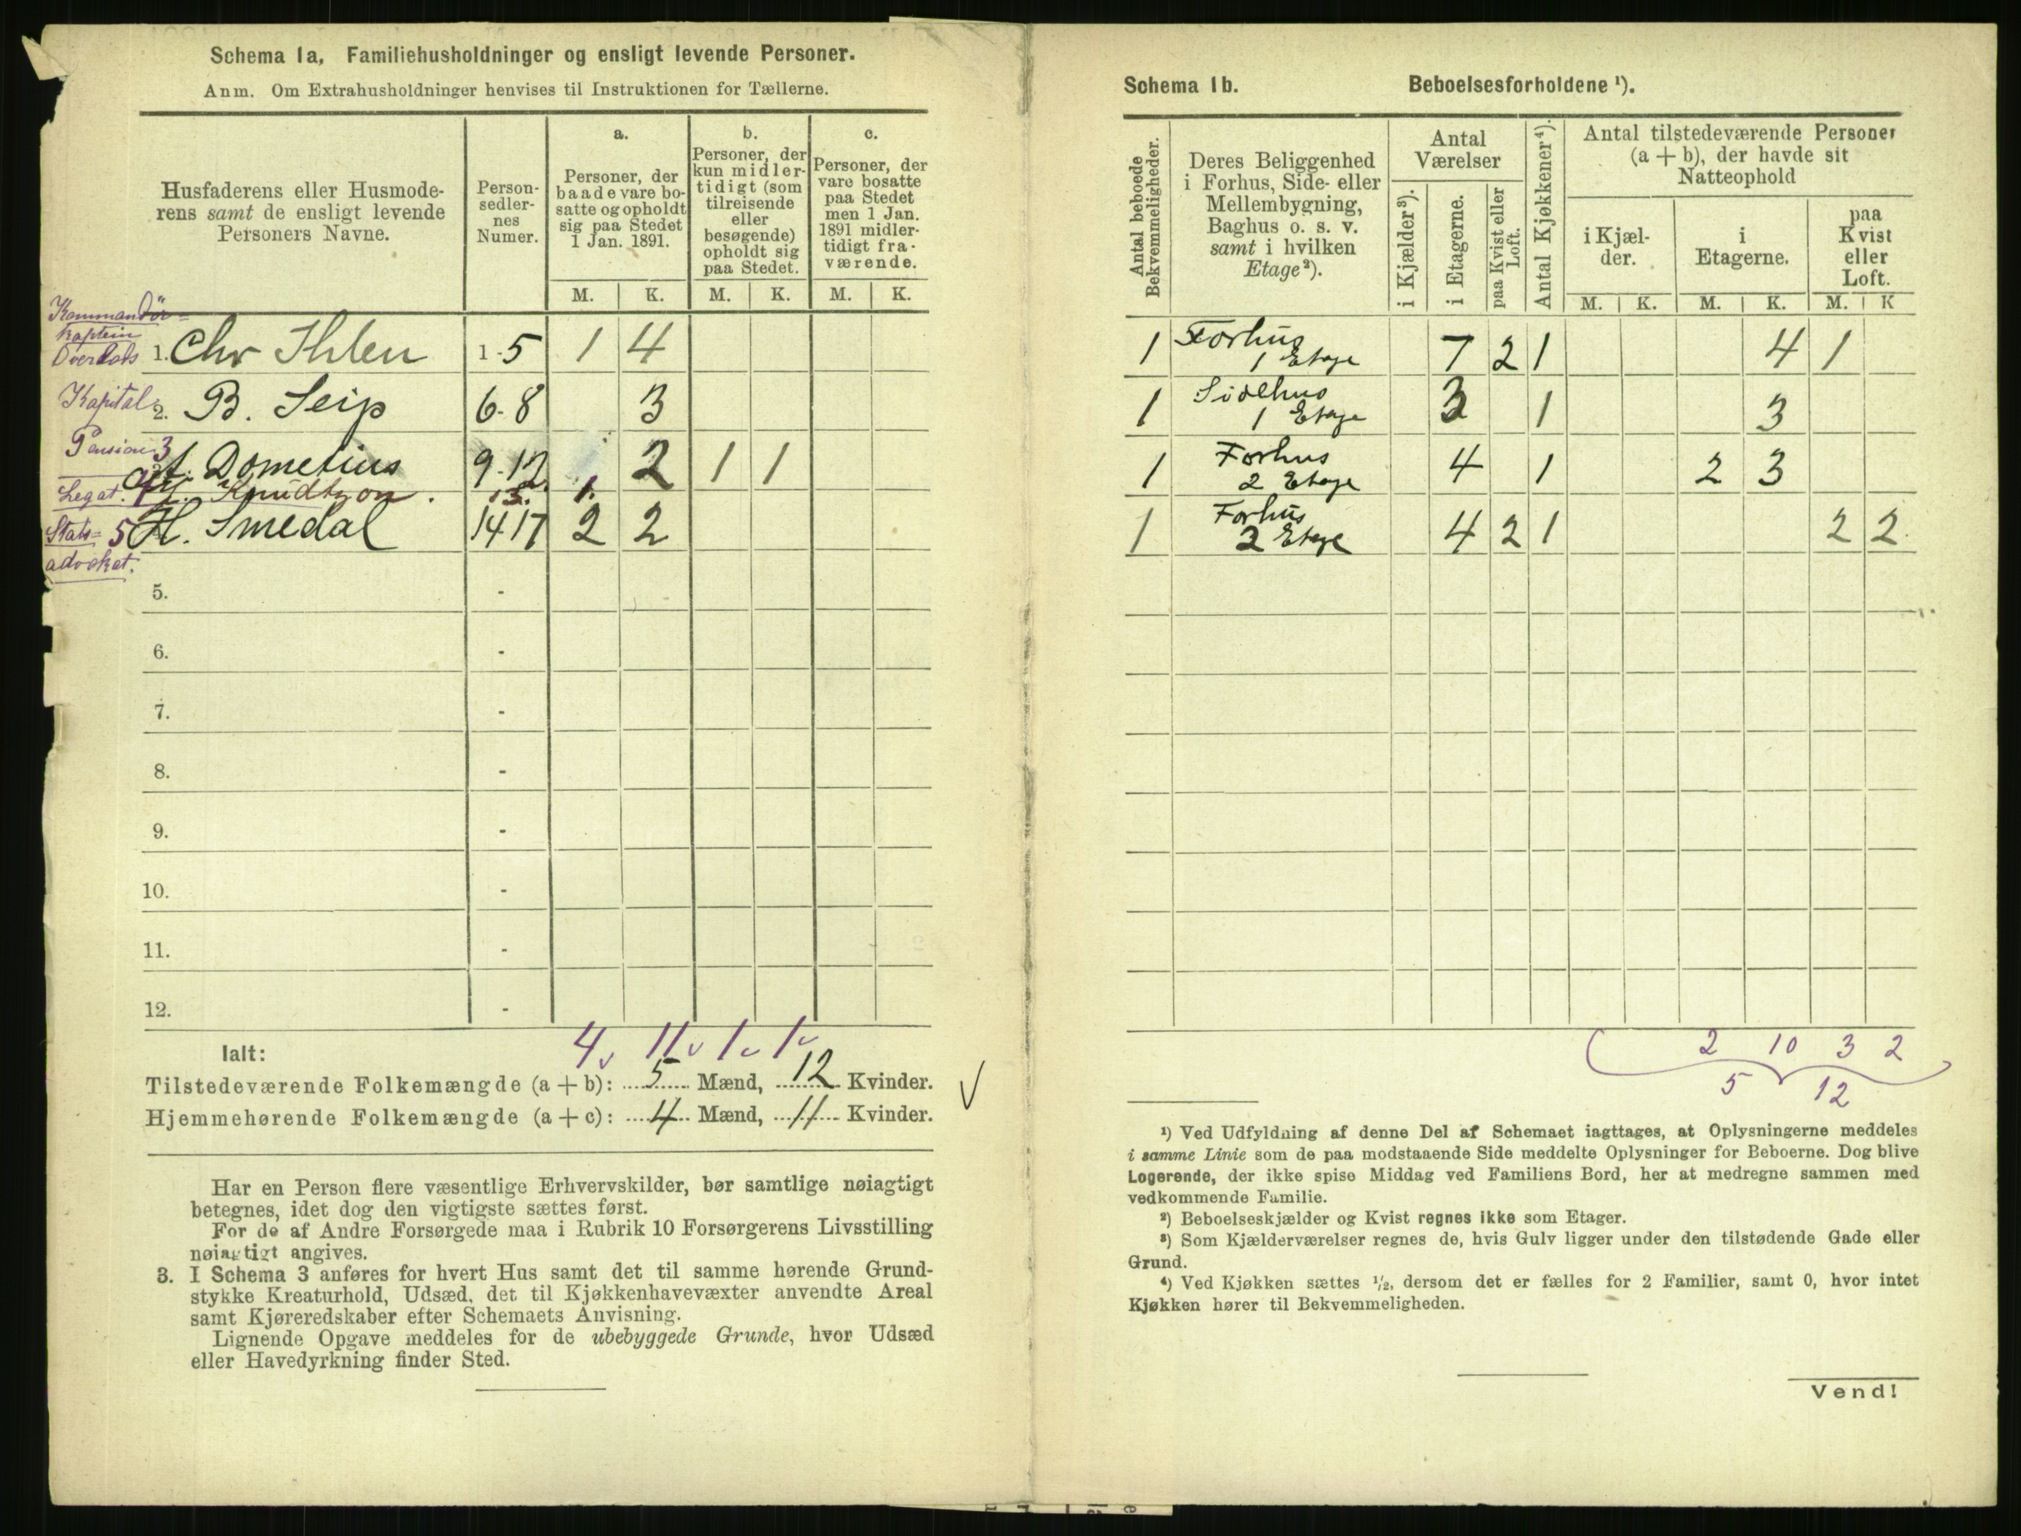 Schema 1a, Familiehusholdninger og ensligt levende Personer.
Anm. Om Extrahusholdninger henvises til Instruktionen for Tællerne.
Husfaderens eller Husmode-
rens samt de ensligt levende
Personers Navne.
Person-
sedler-
nes
Numer.
a.
Personer, der
baade vare bo-
satte og opholdt
sig paa Stedet
1 Jan. 1891.
b.
Personer, der
kun midler-
tidigt (som
tilreisende
eller
besøgende)
opholdt sig
paa Stedet.
c.
Personer, der
vare bosatte
paa Stedet
men 1 Jan.
1891 midler-
tidigt fra-
værende.
M. K. M. K. M. K.
Kommandör=
kaptein
Overlots 1. Chr Ihlen 1-5 1 4
Kapital 2. B. Seip 6-8 3
Pension 3 Dometius 9-12 2 1 1
Legat. 4 Knudtzon. 13. 1.
Stats= 5 H. Smedal 14 17 2 2
advokat.
5. -
6. -
7. -
8. -
9. -
10. -
11. -
12. -
4 11 1 1
Ialt:
Tilstedeværende Folkemængde (a + b): 5 Mænd, 12 Kvinder.
Hjemmehørende Folkemængde (a + c): 4 Mænd, 11 Kvinder.
Har en Person flere væsentlige Erhvervskilder, bør samtlige nøiagtigt
betegnes, idet dog den vigtigste sættes først.
For de af Andre Forsørgede maa i Rubrik 10 Forsørgerens Livsstilling
nøiagtigt angives.
3. I Schema 3 anføres for hvert Hus samt det til samme hørende Grund-
stykke Kreaturhold, Udsæd, det til Kjøkkenhavevæxter anvendte Areal
samt Kjøreredskaber efter Schemaets Anvisning.
Lignende Opgave meddeles for de ubebyggede Grunde, hvor Udsæd
eller Havedyrkning finder Sted.
Schema 1b. Beboelsesforholdene ¹).
Antal beboede
Bekvemmeligheder.
Deres Beliggenhed
i Forhus, Side- eller
Mellembygning,
Baghus o. s. v.
samt i hvilken
Etage²).
Antal
Værelser
i Kjælder³).
i Etagerne.
paa Kvist eller
Loft.
Antal Kjøkkener⁴).
Antal tilstedeværende Personer
(a + b), der havde sit
Natteophold
i Kjæl-
der.
i
Etagerne.
paa
Kvist
eller
Loft.
M. K. M. K. M. K
1 Forhus
1 Etage 7 2 1 4 1
1 Sidehus
1 Etage 3 1 3
1 Forhus
2 Etage 4 1 2 3
1 Forhus
2 Etage 4 2 1 2 2
2 10 3 2
5 12
¹) Ved Udfyldning af denne Del af Schemaet iagttages, at Oplysningerne meddeles
i samme Linie som de paa modstaaende Side meddelte Oplysninger for Beboerne. Dog blive
Logerende, der ikke spise Middag ved Familiens Bord, her at medregne sammen med
vedkommende Familie.
²) Beboelseskjælder og Kvist regnes ikke som Etager.
³) Som Kjælderværelser regnes de, hvis Gulv ligger under den tilstødende Gade eller
Grund.
⁴) Ved Kjøkken sættes ¹/₂, dersom det er fælles for 2 Familier, samt 0, hvor intet
Kjøkken hører til Bekvemmeligheden.
Vend!